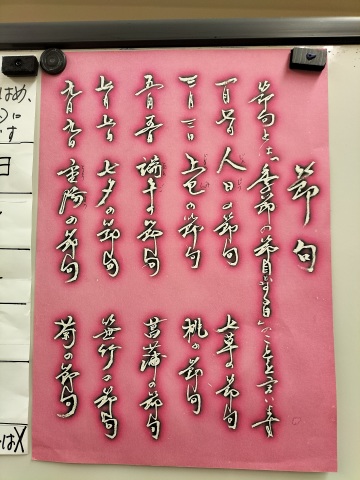 節句
節句とは季節の節目となる日のことを言います
一月七日 人日の節句 七草の節句
三月三日 上巳の節句 桃の節句
五月五日 端午の節句 菖蒲の節句
七月七日 七夕の節句 笹竹の節句
九月九日 重陽の節句 菊の節句